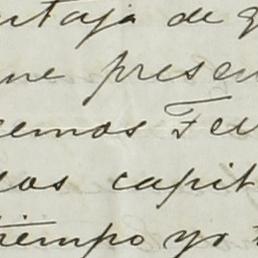 ntaja de g
me presen
emos Fer
los capit
tiempo yo